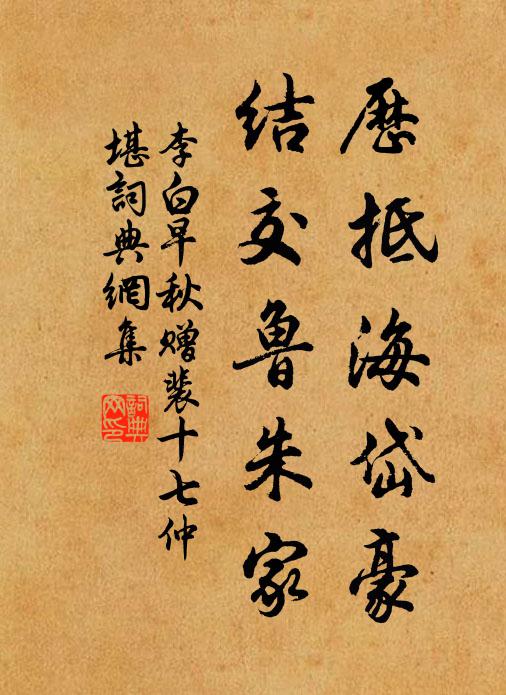 歷抵海岱豪
结交魯朱家
李白早秋赠裴十七仲
堪詞典網集
詞典
网印